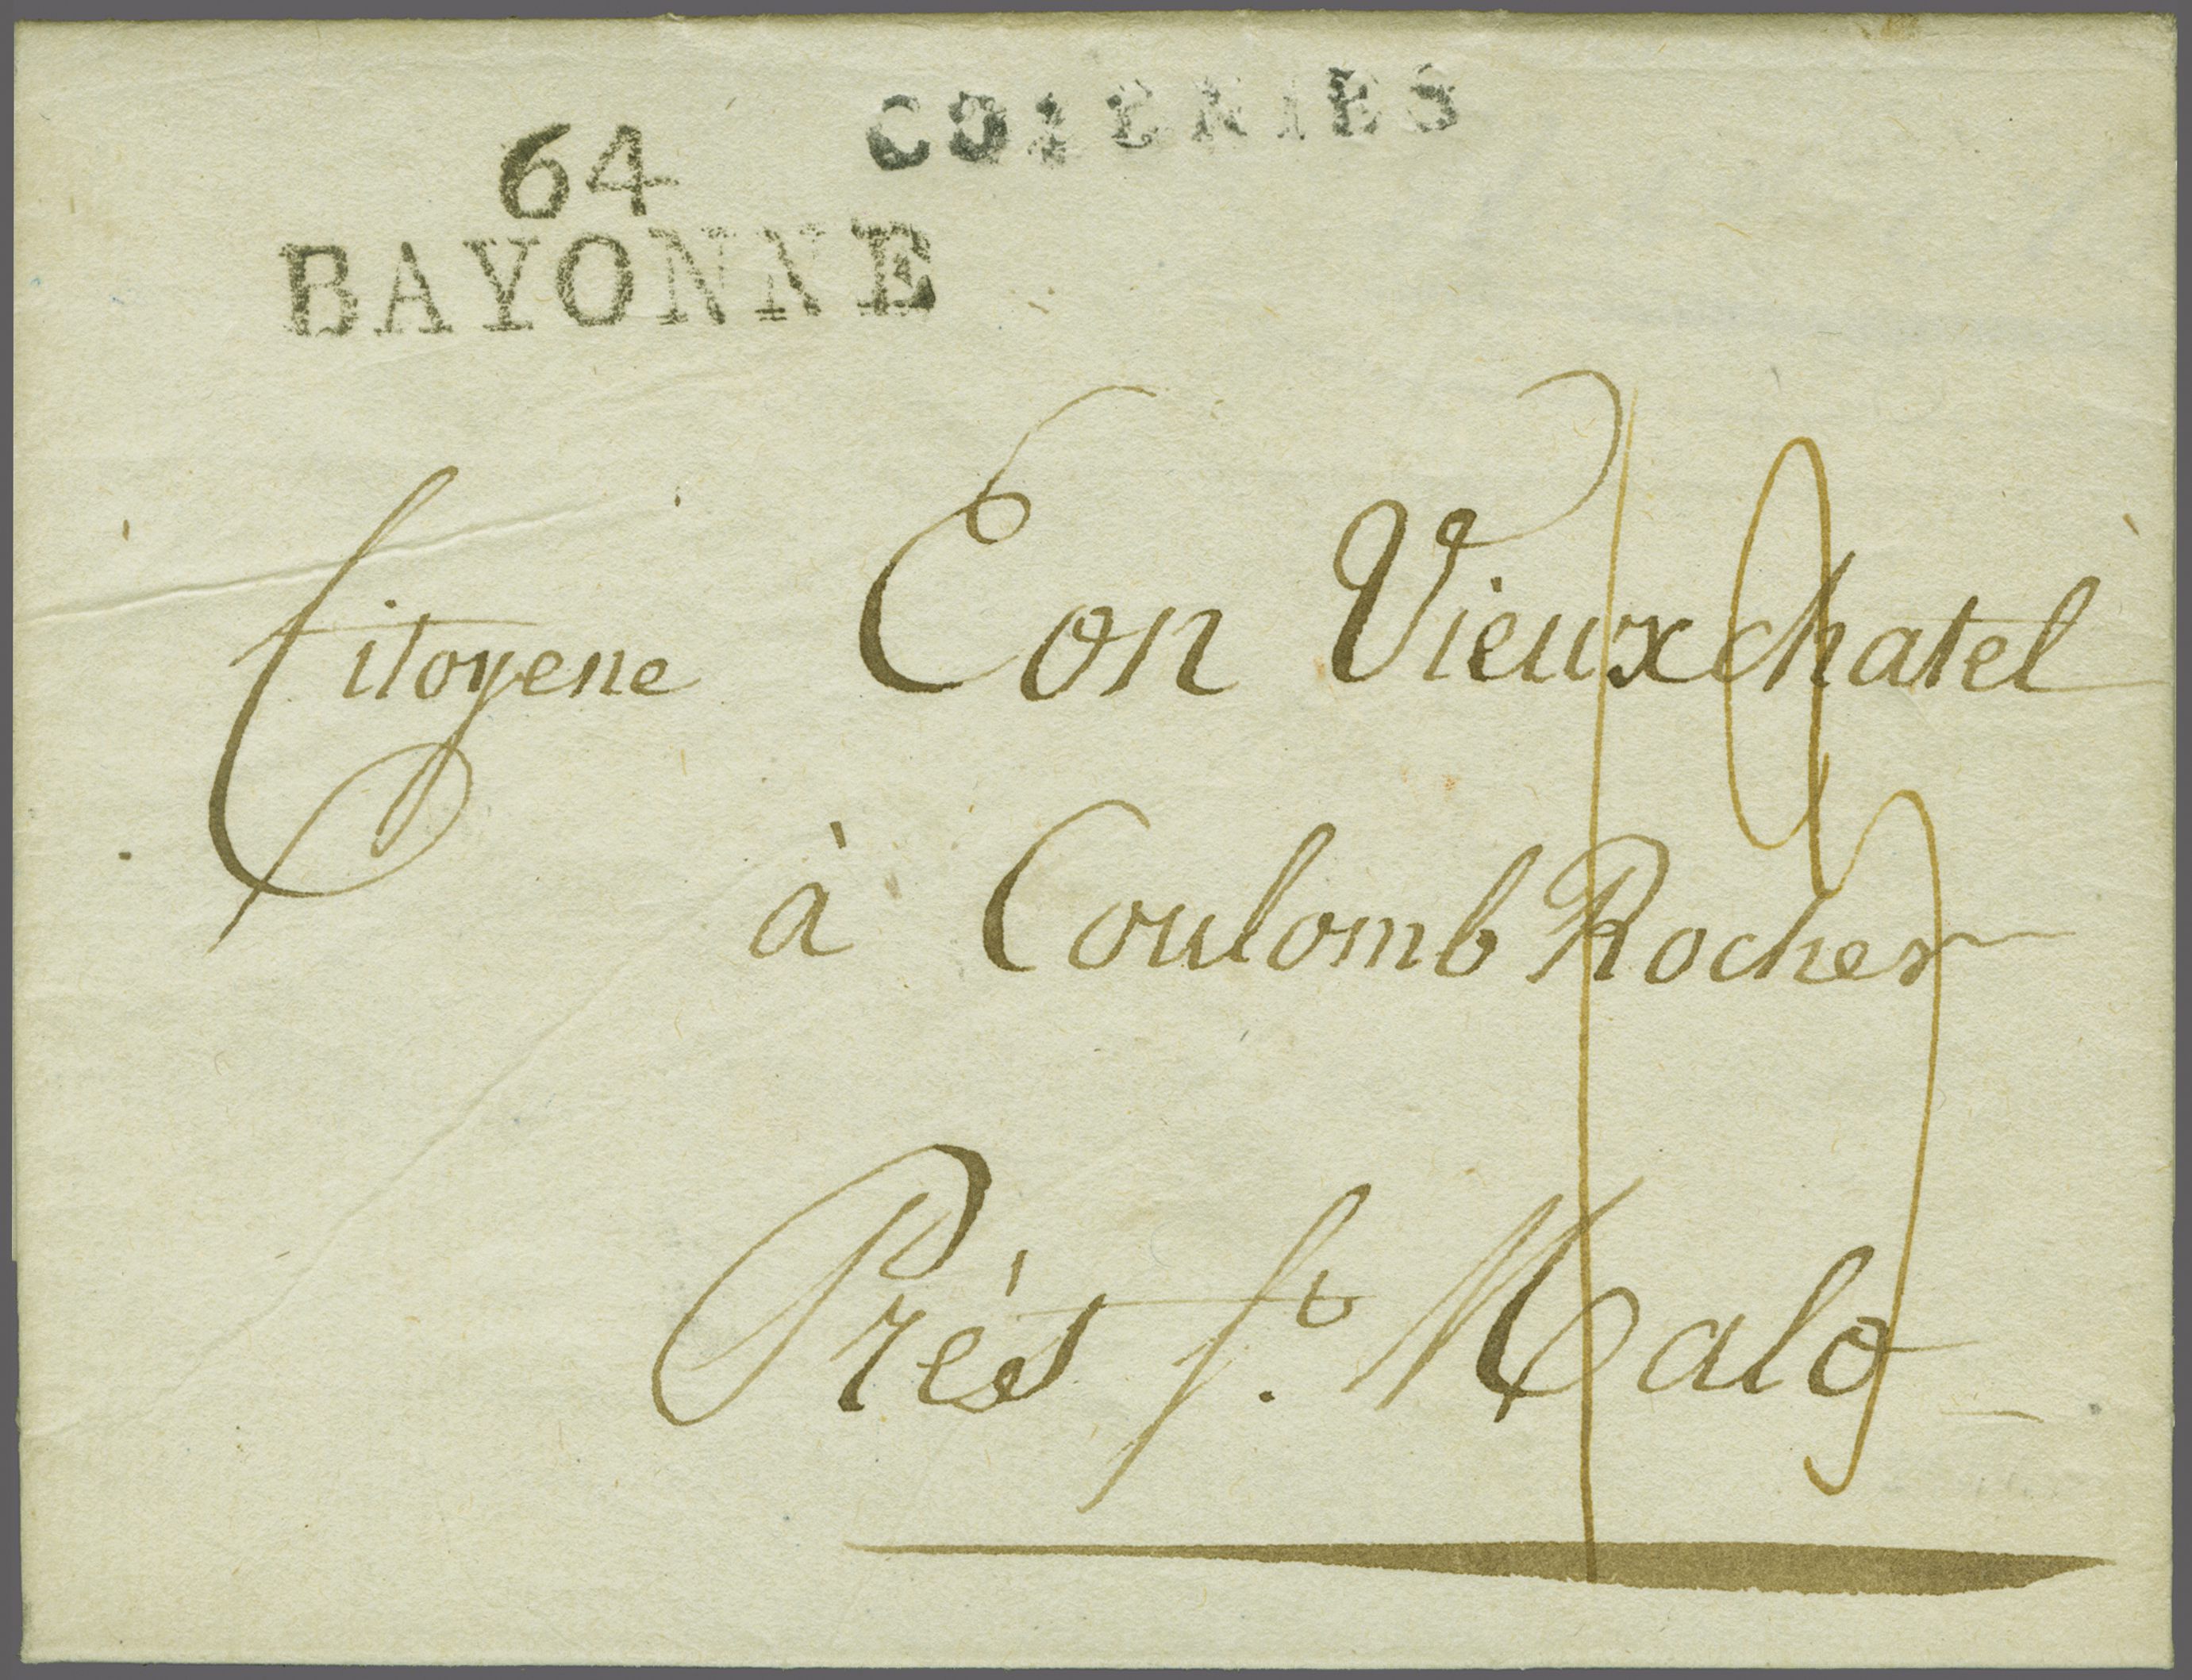 COLONIES
64
BAYONNE
Citoyene Eon Vieuxchatel
à Coulomb Rocher
Près St. Malo
19